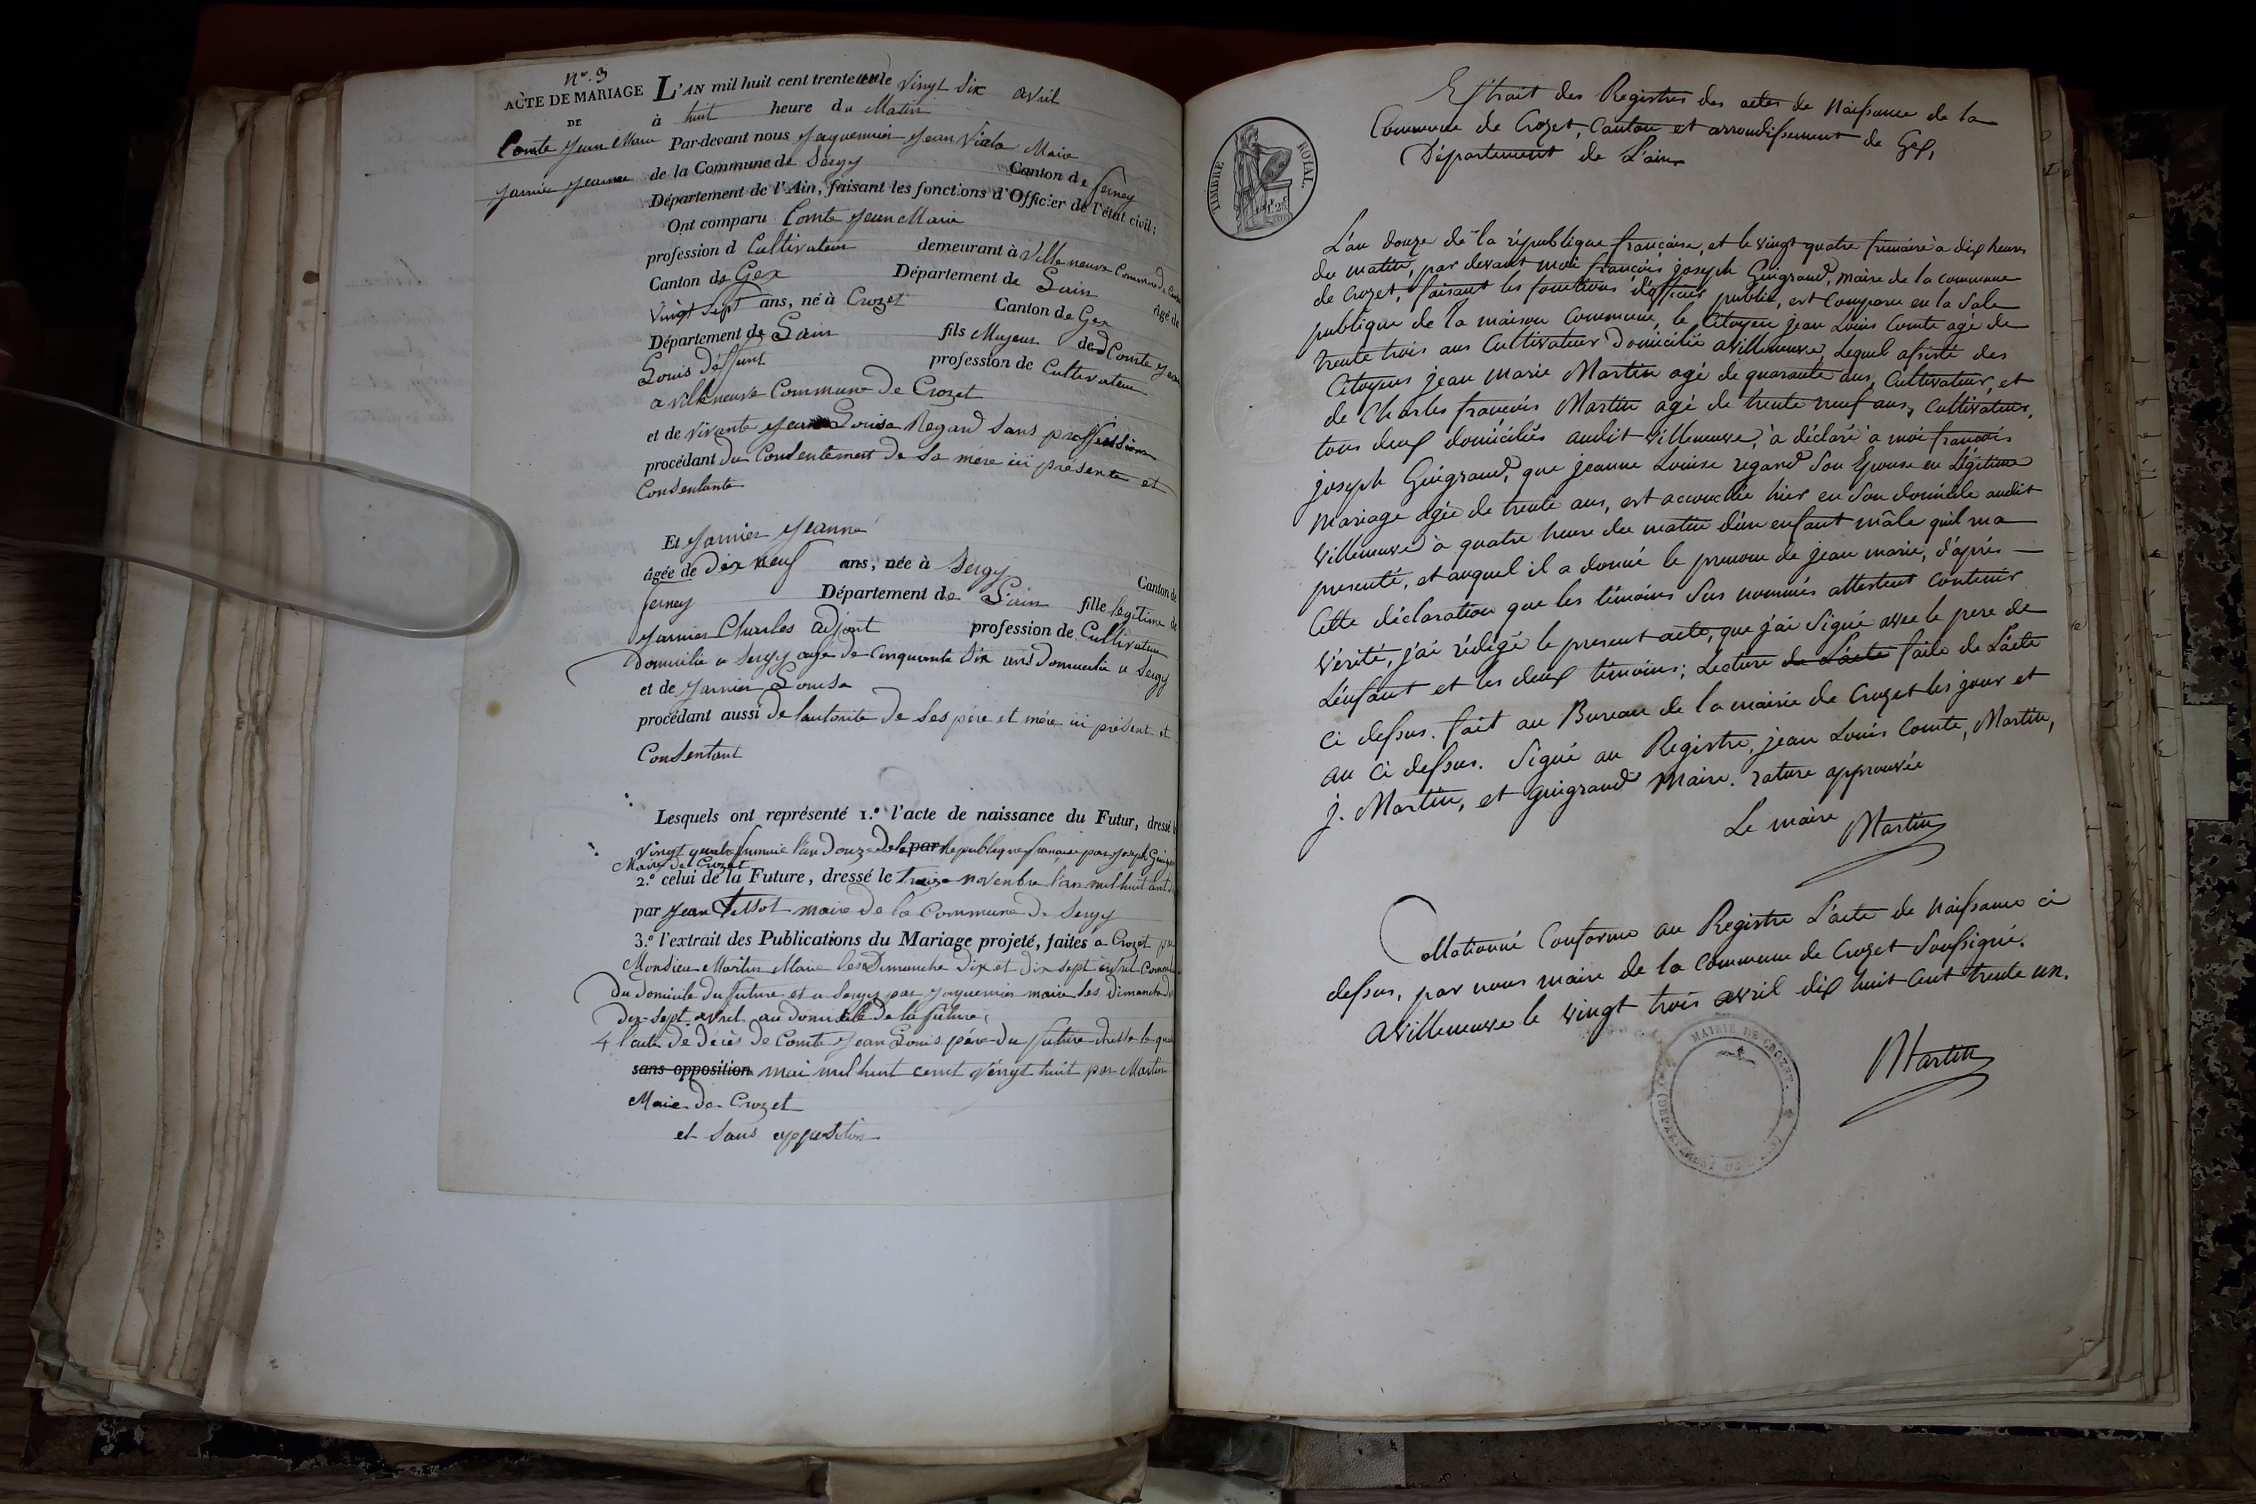 N°. 3
ACTE DE MARIAGE
DE
Comte Jean Marie
Janier Jeanne
L'AN mil huit cent trente un le vingt six avril
à huit heure du Matin
Par-devant nous Jaquemier Jean Maire
de la Commune de Sergy Canton de ferney
Département de l'Ain, faisant les fonctions d'Officier de l'état civil;
Ont comparu Comte Jean Marie
profession d Cultivateur demeurant à Villeneuve Commune de
Canton de Gex Département de Lain âgé de
Vingt sept ans, né à Crozet Canton de Gex
Département de Lain fils Majeur de Comte Jean
Louis déffunt profession de Cultivateur
a villeneuve Commune de Crozet
et de vivante Jeanne Louise Regard sans proffession
procédant du Consentement de sa mere ici présente et
Consentante
Et Janier Jeanne
âgée de dix neuf ans, née à Sergy Canton de
ferney Département de Lain fille legitime de
Janier Charles adjoint profession de Cultivateur
Domicilié a Sergy agé de Cinquante six ans Domicilié a Sergy
et de Janier Louise
procédant aussi de lautorité de ses père et mére ici présent et
Consentant
Lesquels ont représenté 1.° l'acte de naissance du Futur, dressé
Vingt quatre frimaire l'an douze de la par République francaise par Joseph
Maire de Crozet
2.° celui de la Future, dressé le treize novembre l'an mil huit cent
par Jean Tissot maire de la Commune de Sergy
3.° l'extrait des Publications du Mariage projeté, faites a Crozet par
Monsieur Martin Maire les Dimanche dix et dix sept avril
du domicile du future et a Sergy par Jaquemier maire les dimanche
dix-sept avril au domicile de la future;
4 l'acte de décès de Comte Jean Louis père du future dressé le
sans opposition mai mil huit cent vingt huit par Martin
Maire de Crozet
et sans opposition
TIMBRE ROYAL.
Extrait des Registres des actes de Naissance de la
Commune de Crozet, Canton et arrondissement de Gex,
Département de L'ain
L'an douze de la république française, et le vingt quatre frimaire à dix heures
du matin, par devant moi françois joseph Guigrand, maire de la commune
de Crozet, faisant les fonctions d'officier public, est comparu en la sale
publique de la maison commune, le Citoyen jean Louis Comte agé de
trente trois ans Cultivateur Domicilié a villeneuve, lequel assisté des
Citoyens jean marie Martin agé de quarante ans, Cultivateur, et
de Charles françois Martin agé de trente neuf ans, cultivateur,
tous deux domiciliés audit villeneuve, à déclaré à moi françois
joseph Guigrand, que jeanne Louise regard son Epouse en Légitime
Mariage agée de trente ans, est accouchée hier en son domicile audit
villeneuve à quatre heure du matin d'un enfant mâle quil ma
presenté, et auquel il a donné le prenom de jean marie, d'après
cette déclaration que les témoins sus nommés attestent contenir
vérité, j'ai rédigé le present acte, que j'ai signé avec le pere de
L'enfant et les deux témoins; Lecture de L'acte faite de L'acte
ci dessus. fait au Bureau de la mairie de Crozet les jour et
an ci dessus. Signé au Registre, jean Louis Comte, Martin,
j. Martin, et guigrand maire. rature approuvée
Le maire Martin
Collationné Conforme au Registre L'acte de Naissance ci
dessus, par nous maire de la commune de Crozet Soussigné.
a Villeneuve le vingt trois avril dix huit cent trente un.
Martin
MAIRIE DE CROZET